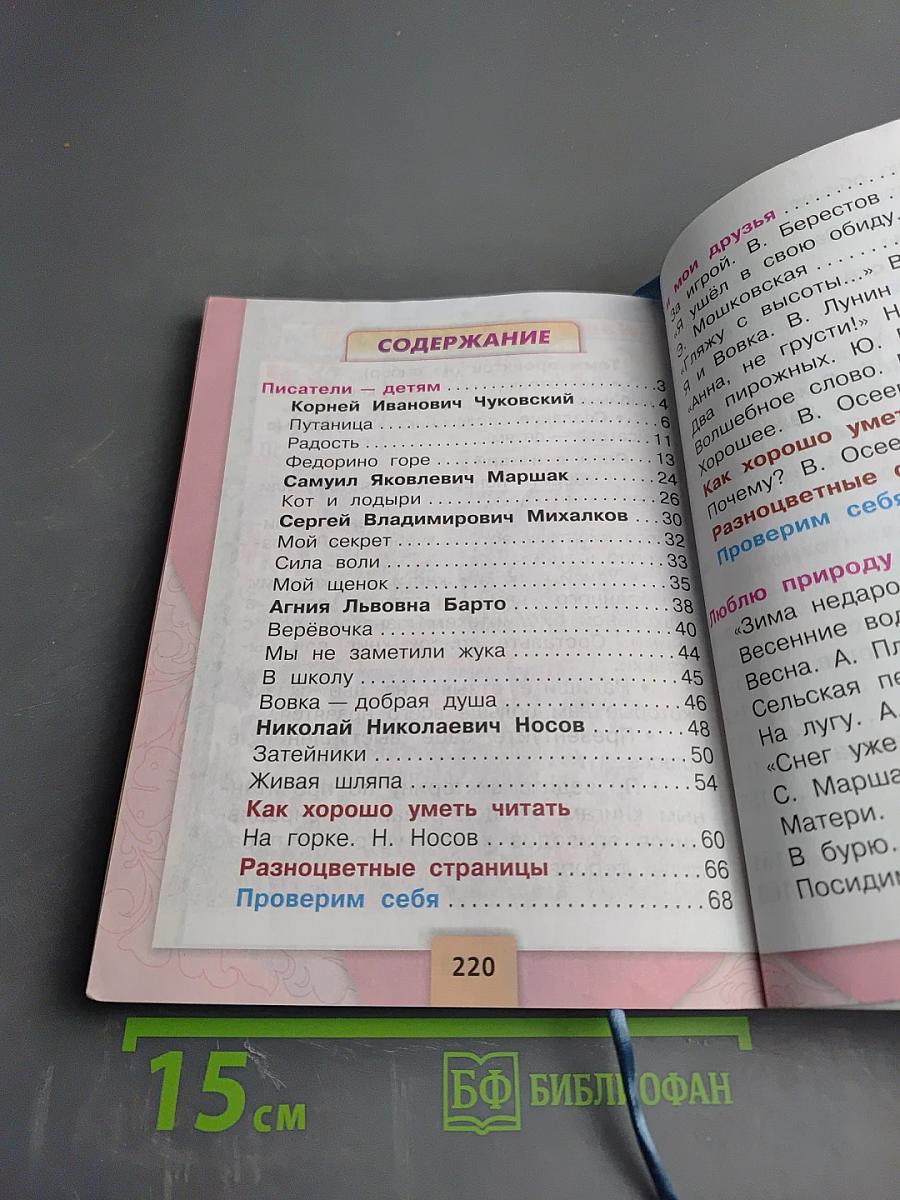 СОДЕРЖАНИЕ
Писатели — детям ........ 3
Корней Иванович Чуковский ........ 4
Путаница ........ 6
Радость ........ 11
Федорино горе ........ 13
Самуил Яковлевич Маршак ........ 24
Кот и лодыри ........ 26
Сергей Владимирович Михалков ... 30
Мой секрет ........ 32
Сила воли ........ 33
Мой щенок ........ 35
Агния Львовна Барто ........ 38
Верёвочка ........ 40
Мы не заметили жука ........ 44
В школу ........ 45
Вовка — добрая душа ........ 46
Николай Николаевич Носов ........ 48
Затейники ........ 50
Живая шляпа ........ 54
Как хорошо уметь читать
На горке. Н. Носов ........ 60
Разноцветные страницы ........ 66
Проверим себя ........ 68
220
и мои друзья ........
За игрой. В. Берестов
«Я ушёл в свою обиду.
Э. Мошковская ........
«Гляжу с высоты...» В
я и Вовка. В. Лунин
«Анна, не грусти!» Н
Два пирожных. Ю.
Волшебное слово.
Хорошее. В. Осее
Как хорошо умет
Почему? В. Осее
Разноцветные
Проверим себя
Люблю природу
«Зима недаро
Весенние вод
Весна. А. Пл
Сельская пе
На лугу. А.
«Снег уже
С. Марша
Матери.
В бурю.
Посидим
15 см
БФ БИБЛИОФАН